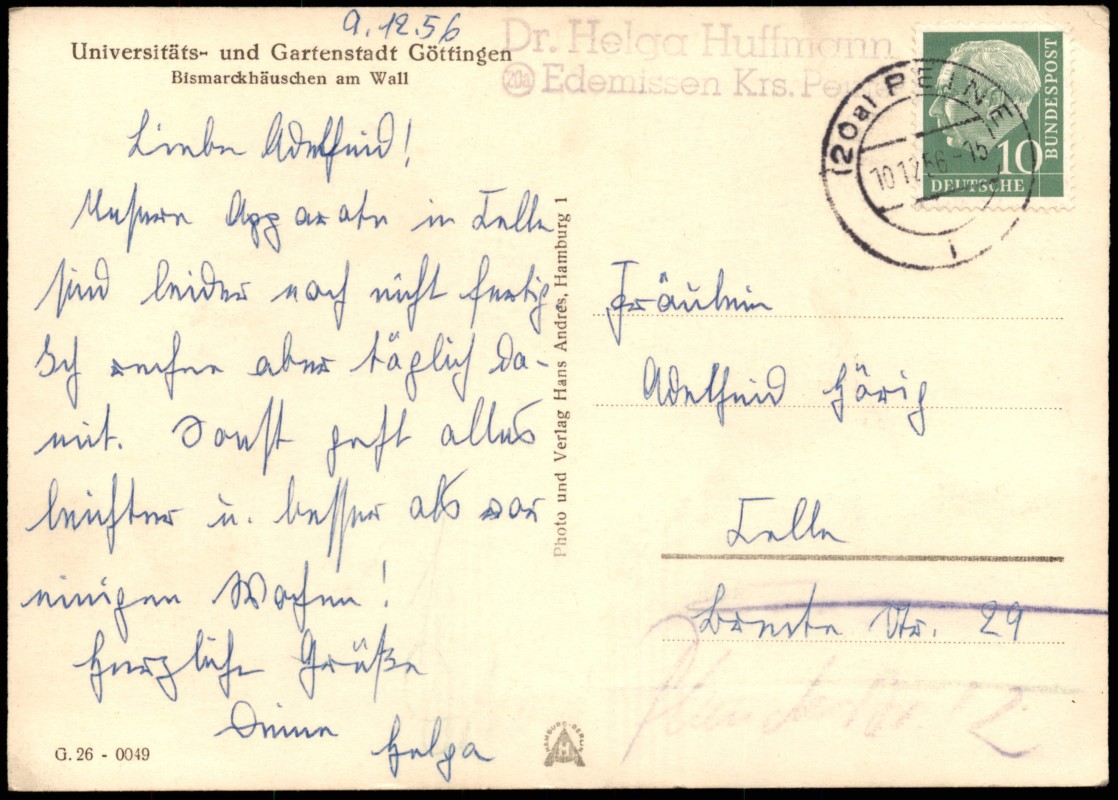 9.12.56
Universitäts- und Gartenstadt Göttingen
Bismarckhäuschen am Wall
Dr. Helga Huffmann
20a Edemissen Krs. Peine
(20a) PEINE
10.12.56-15
i
10
DEUTSCHE
BUNDESPOST
Liebe Adelheid!
Unsere Apparate in Celle
sind leider noch nicht fertig.
Ich rechne aber täglich da-
mit. Sonst geht alles
leichter u. besser als vor
einigen Wochen!
Herzliche Grüße
Deine
Helga
Photo und Verlag Hans Andres, Hamburg 1
Fräulein
Adelheid Görig
Celle
Breite Str. 29
HAMBURG-BERLIN
G. 26 - 0049